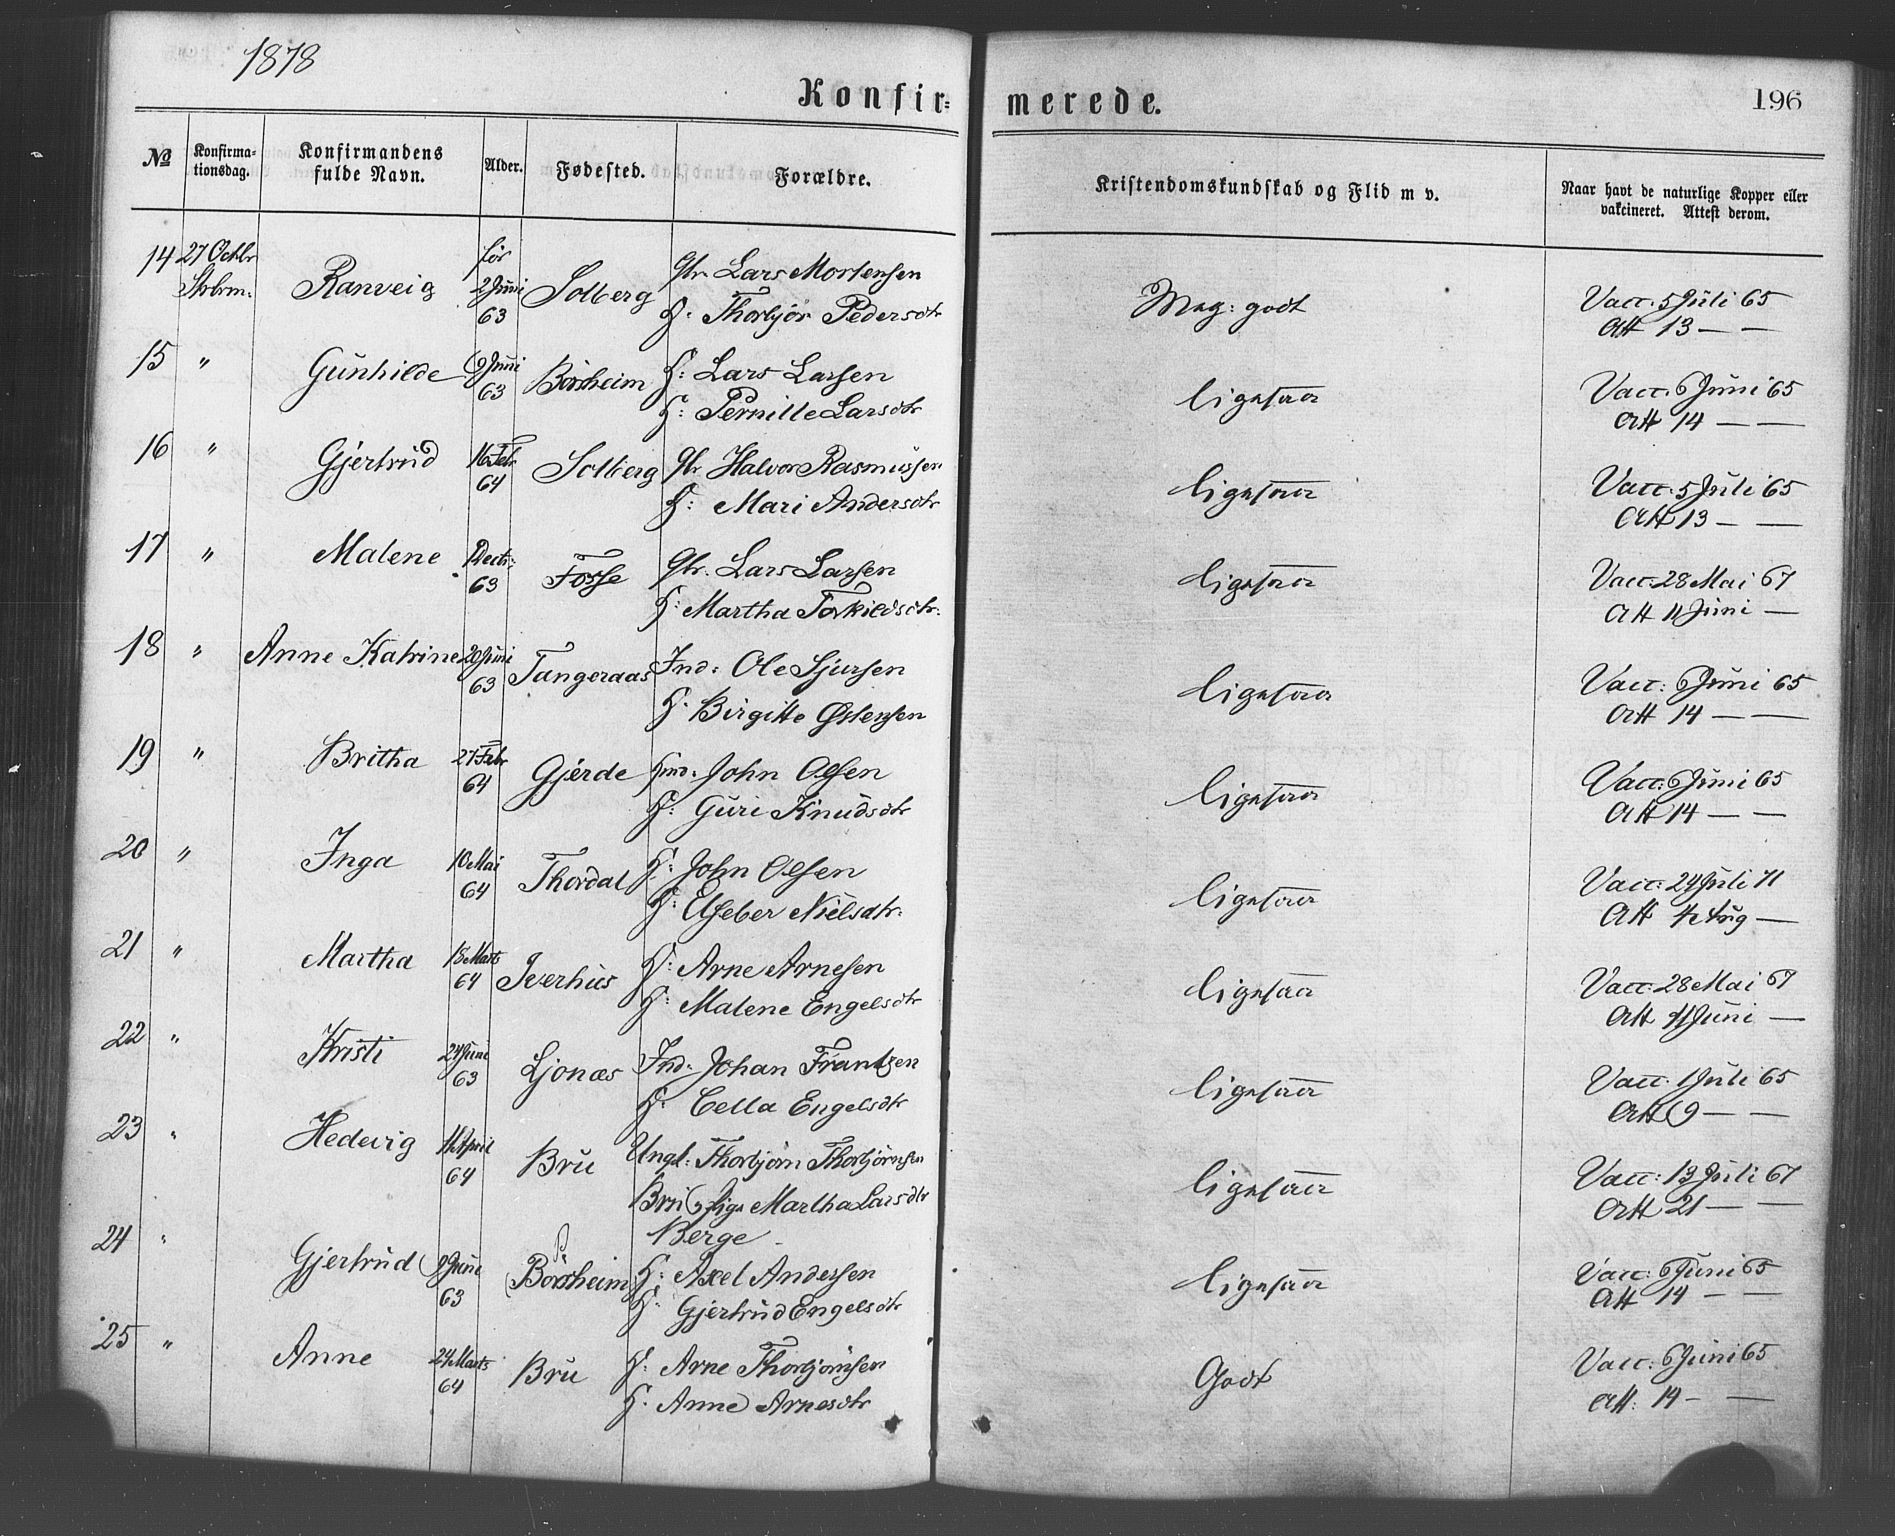 1878
Konfirmerede.
196
№ Konfirmationsdag. Konfirmandens fulde Navn. Alder. Fødested. Forældre. Kristendomskundskab og Flid m v. Naar havt de naturlige Kopper eller vakcineret. Attest derom.
14 27 Octbr Ranveig før 2 Juni 63 Solberg Gbr. Lars Mortensen Meg: godt Vacc: 5 Juli 65
H: Thorbjør Pedersdtr Att 13 — —
15 " Gunhilde 9 Juni 63 Børsheim H: Lars Larsen ligesaa Vacc. 6 Juni 65
H: Pernille Larsdtr Att 14 — —
16 " Gjertrud 16 Febr 64 Solberg Gbr Halvor Rasmussen ligesaa Vacc: 5 Juli 65
H: Mari Andersdtr Att 13 — —
17 " Malene Decbr: 63 Fosse Gbr. Lars Larsen ligesaa Vacc: 28 Mai 67
H: Martha Torkildsdtr: Att 11 Juni —
18 " Anne Katrine 20 Juni 63 Tangeraas Ind: Ole Sjursen ligesaa Vacc: 6 Juni 65
H. Birgitte Østensen Att 14 — —
19 " Britha 27 Febr 64 Gjerde John Olsen ligesaa Vacc: 6 Juni 65
H: Guri Knudsdtr Att 14 — —
20 " Inga 10 Mai 64 Thordal H: John Olsen ligesaa Vacc: 24 Juli 71
H: Elseber Nielsdtr: Att Aug —
21 " Martha 18 Marts 64 Iverhus H: Arne Arnesen ligesaa Vacc: 28 Mai 67
H: Malene Engelsdtr Att 11 Juni —
22 " Kristi 24 Juni 63 Ljonæs Ind: Johan Frantzen ligesaa Vacc. 1 Juli 65
H: Cella Engelsdtr Att 9 — —
23 " Hedevig April 64 Bru Ungk: Thorbjørn Thorbjørnsen ligesaa Vacc: 13 Juli 67
Bru, Pige Martha Larsdtr Att 21 — —
Berge
24 " Gjertrud 9 Juni 63 Børsheim H: Axel Andersen ligesaa Vacc: 6 Juni 65
H: Gjertrud Engelsdtr Att 14 — —
25 " Anne 24 Marts 64 Bru H: Arne Thorbjørnsen Godt Vacc: 6 Juni 65
H. Anne Arnesdtr Att: 14 — —